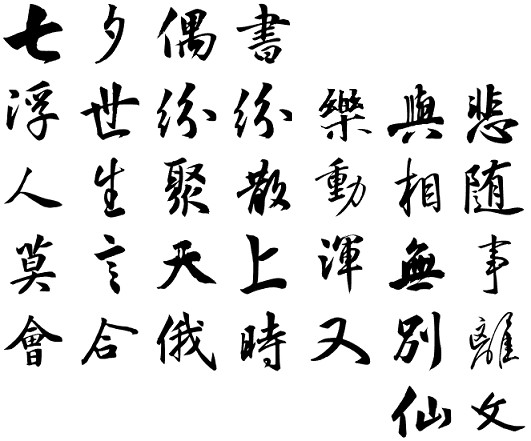 七夕偶書
浮世紛紛樂與悲
人生聚散動相随
莫言天上渾無事
會合俄時又別離
仙文